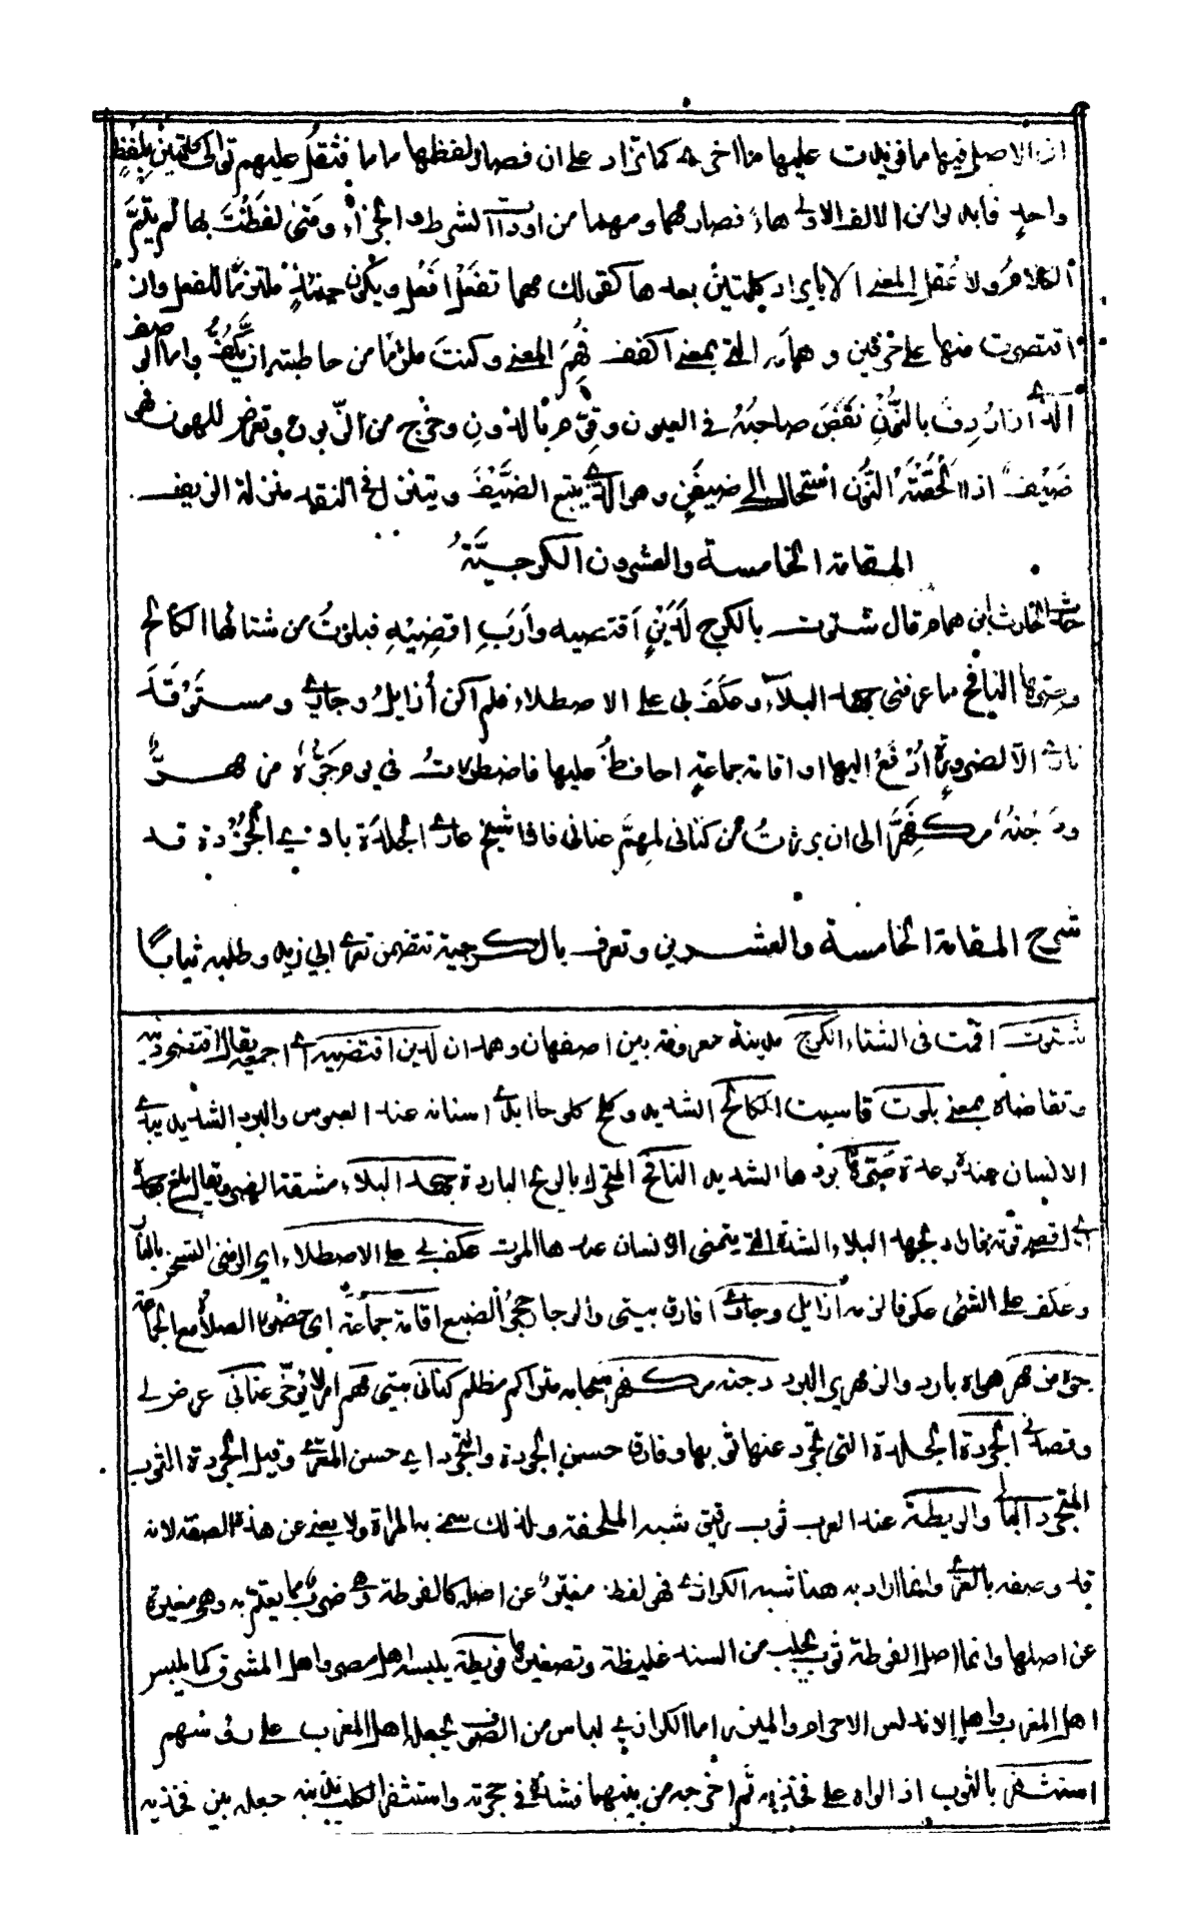 اذ الاصل فيها ما فزيدت عليها ما اخرى كما تزاد على ان فصار لفظها ماما فثقل عليهم توالى كلمتين بلفظ
واحد فابدلوا من الالف الاولى هاء فصار مهما ومهما من ادوات الشرط والجزاء ومتى لفظت بها لم يتم
الكلام ولا عقل المعنى الا بايراد كلمتين بعدها كقولك مهما تفعل افعل ويكون حينئذ ملتزما للفعل وان
اقتصرت منها على حرفين وهما مه التى بمعنى اكفف فهم المعنى وكنت ملزما من خاطبته ان يكف واما الوصف
الذى اذا اردف بالنون نقص صاحبه فى العيون وقوم بالدون وخرج من الزبون وتعرض للهون فهو
ضيف اذا الحقته النون استحال الى ضيفن وهو الذى يتبع الضيف ويتنزل فى النقد منزلة الزيف
المقامة الخامسة والعشرون الكرجية
حدث الحارث ابن همام قال شتوت بالكرج لدين اقتضيه وارب اقضيه فبلوت من شتائها الكالح
وصرها النافح ما عرفنى جهد البلاء وعكف بى على الاصطلاء فلم اكن ازايل وجارى ومستوقد
نارى الا لضرورة ادفع اليها او اقامة جماعة احافظ عليها فاضطررت فى يوم جوه مزمهر
ودجنه مكفهر الى ان برزت من كنانى لمهم عنانى فاذا شيخ عارى الجلدة بادى الجردة قد
شرح المقامة الخامسة والعشرين وتعرف بالكرجية تتضمن تعرى ابي زيد وطلبه ثيابا
شتوت اقمت فى الشتاء الكرج مدينة معروفة بين اصفهان وهمدان لدين اقتضيه اى اجمعه يقال اقتضى دينه
وتقاضاه بمعنى بلوت قاسيت الكالح الشديد وكلح كلوحا ابدى اسنانه عند العبوس والبرد الشديد يبدى
الانسان عنده رعدة صرها بردها الشديد النافح المتحرك بالريح الباردة جهد البلاء مشقة الضر ويقال بلغ جهده
اى اقصى قوته فاراد بجهد البلاء الشدة التى يتمنى الانسان عندها الموت عكف بى على الاصطلاء اى الزمنى التسخن بالنار
وعكف على الشئ عكوفا لزمه ازايل وجارى افارق بيتى والوجار جحر الضبع اقامة جماعة اى حضور الصلاة مع الجماعة
جوه مزمهر هواه بارد والزمهرير البرد دجنه مكفهر سحابه متراكم مظلم كنانى بيتى مهم امر لا يؤخر عنانى عرض لى
وقصدنى الجردة الجلدة التى تجرد عنها ثوبها وفارق حسن الجردة والتجرد اى حسن المعرى وقيل الجردة الثوب
المتجرد البالى والريطة عند العرب ثوب رقيق شبه الملحفة ولذلك سمى به المراة ولا يعنى عن هذه الصفة لانه
قد وصفه بالعرى وانما اراد به هنا شبه الكرازى فهى لفظ مغير عن اصله كالفوطة وهى ضرب مما يعتم به وهو مغيرة
عن اصلها وانما اصل الفوطة ثوب يجلب من السند غليظة وتصغيرها فويطة يلبسه اهل مصر واهل المشرق كما يلبس
اهل المغرب واهل الاندلس الاحرام والميزر اما الكرازى لباس من الصوف يجعله اهل المغرب على رؤسهم
استثفر بالثوب اذا لواه على فخذيه ثم اخرجه من بينهما فشده فى حجزته واستثفر الكلب بذنبه جعله بين فخذيه